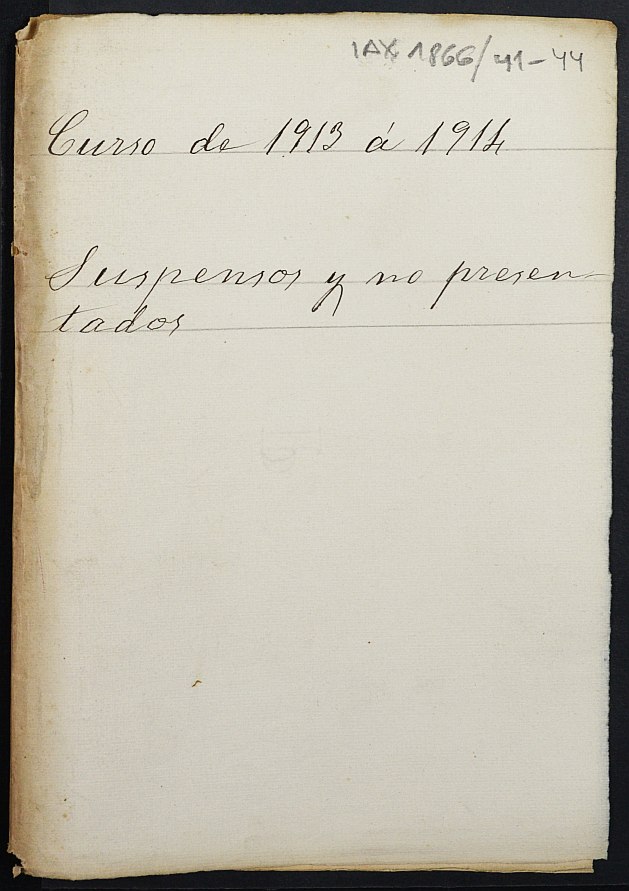 IAX 1866/41-44
Curso de 1913 á 1914
Suspensos y no presen-
tados